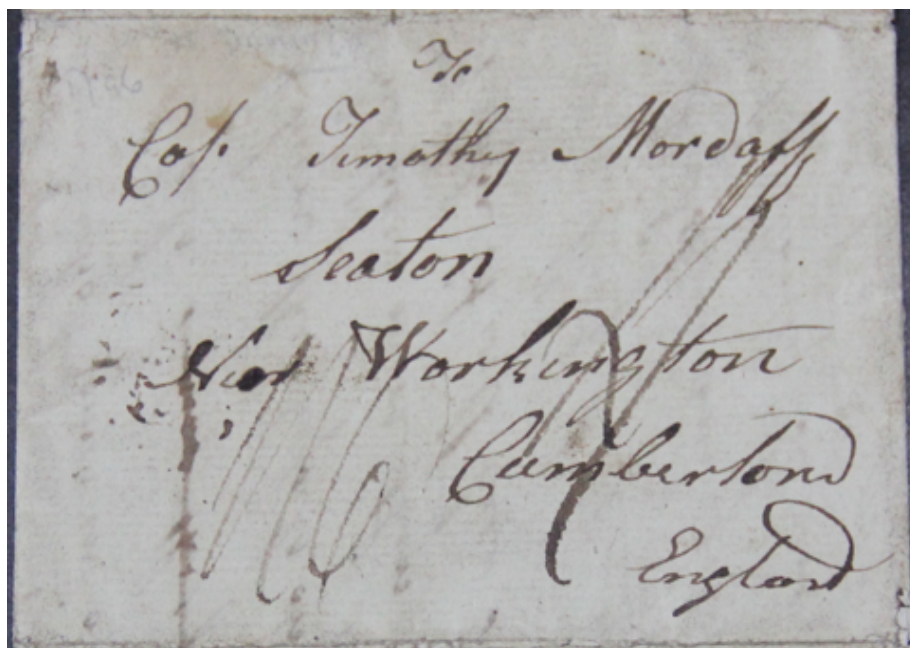 To
Cap. Timothy Mordaff
Seaton
Near Workington
Cumberland
England